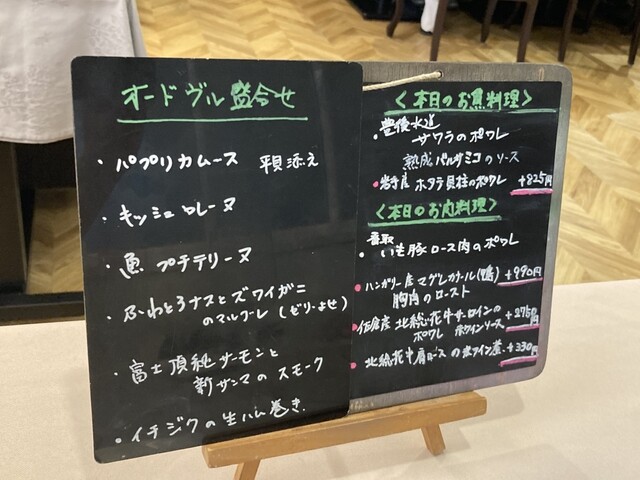 オードヴル盛合せ
・パプリカムース 平貝添え
・キッシュロレーヌ
・魚プチテリーヌ
・ふわとろナスとズワイガニ
のマルブレ(ゼリーよせ)
・富士頂純サーモンと
新サンマのスモーク
・イチジクの生ハム巻き
<本日のお魚料理>
・豊後水道
サワラのポワレ
熟成バルサミコのソース
・岩手産 ホタテ貝柱のポワレ +825円
<本日のお肉料理>
・香取
いも豚ロース肉のポワレ
・ハンガリー産マグレカナール(鴨) +990円
胸肉のロースト
・佐倉産 北総花牛サーロインの +2750円
ポワレ 赤ワインソース
・北総花牛肩ロースの赤ワイン煮 +330円